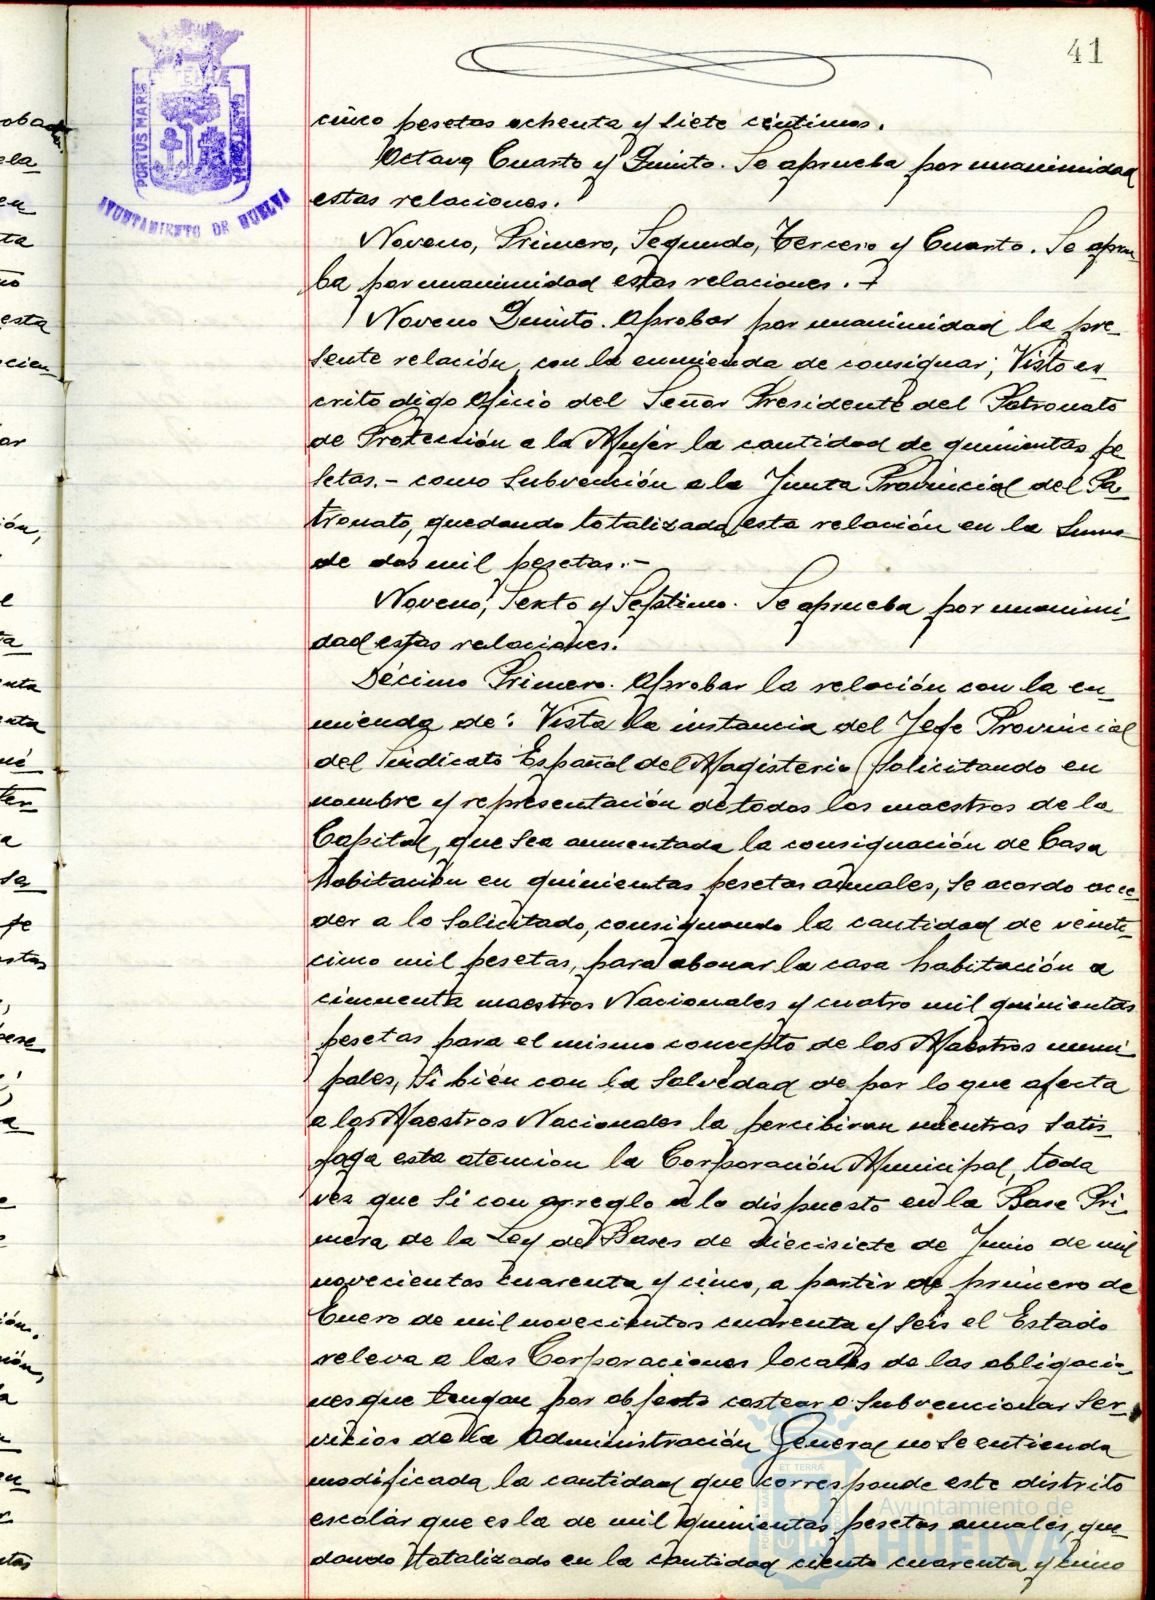 41
PORTUS MARIS
ET TERRÆ
AYUNTAMIENTO DE HUELVA
cinco pesetas ochenta y siete céntimos.
Octavo, Cuarto y Quinto. Se aprueba por unanimidad
estas relaciones.
Noveno, Primero, Segundo, Tercero y Cuarto. Se aprue-
ba por unanimidad estas relaciones.
Noveno Quinto. Aprobar por unanimidad la pre-
sente relación, con la enmienda de consignar; Visto es-
crito digo oficio del Señor Presidente del Patronato
de Protección a la Mujer la cantidad de quinientas pe
setas.- como Subvención a la Junta Provincial del Pa-
tronato, quedando totalizada esta relación en la Suma
de dos mil pesetas.-
Noveno, Sexto y Séptimo. Se aprueba por unanimi-
dad estas relaciones.
Décimo Primero. Aprobar la relación con la en-
mienda de: Vista la instancia del Jefe Provincial
del Sindicato Español del Magisterio, Solicitando en
nombre y representación de todos los maestros de la
Capital, que sea aumentada la consignación de Casa
habitación en quinientas pesetas anuales, se acordo acce-
der a lo Solicitado, consignando la cantidad de veinti-
cinco mil pesetas, para abonar la casa habitación a
cincuenta maestros Nacionales y cuatro mil quinientas
pesetas para el mismo concepto de los Maestros muni
pales, Si bién con la Salvedad de por lo que afecta
a los Maestros Nacionales la percibiran mientras Satis-
faga esta atencion la Corporación Municipal, toda
vez que Si con arreglo a lo dispuesto en la Base Pri-
mera de la Ley de Bases de diecisiete de Junio de mil
novecientos cuarenta y cinco, a partir de primero de
Enero de mil novecientos cuarenta y seis el Estado
releva a las Corporaciones locales de las obligacio-
nes que tengan por objeto costear o Subvencionar Ser-
vicios de la Administración General no Se entienda
modificada la cantidad que corresponde este distrito
escolar que es la de mil quinientas pesetas anuales, que-
dando totalizado en la cantidad ciento cuarenta y cinco
Ayuntamiento de
HUELVA